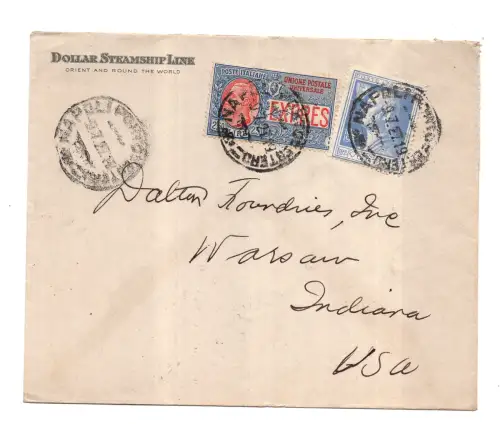 DOLLAR STEAMSHIP LINE
ORIENT AND ROUND THE WORLD
POSTE ITALIANE
UNIONE POSTALE
UNIVERSALE
EXPRES
NAPOLI PORTO
Dalton Foundries, Inc
Warsaw
Indiana
USA